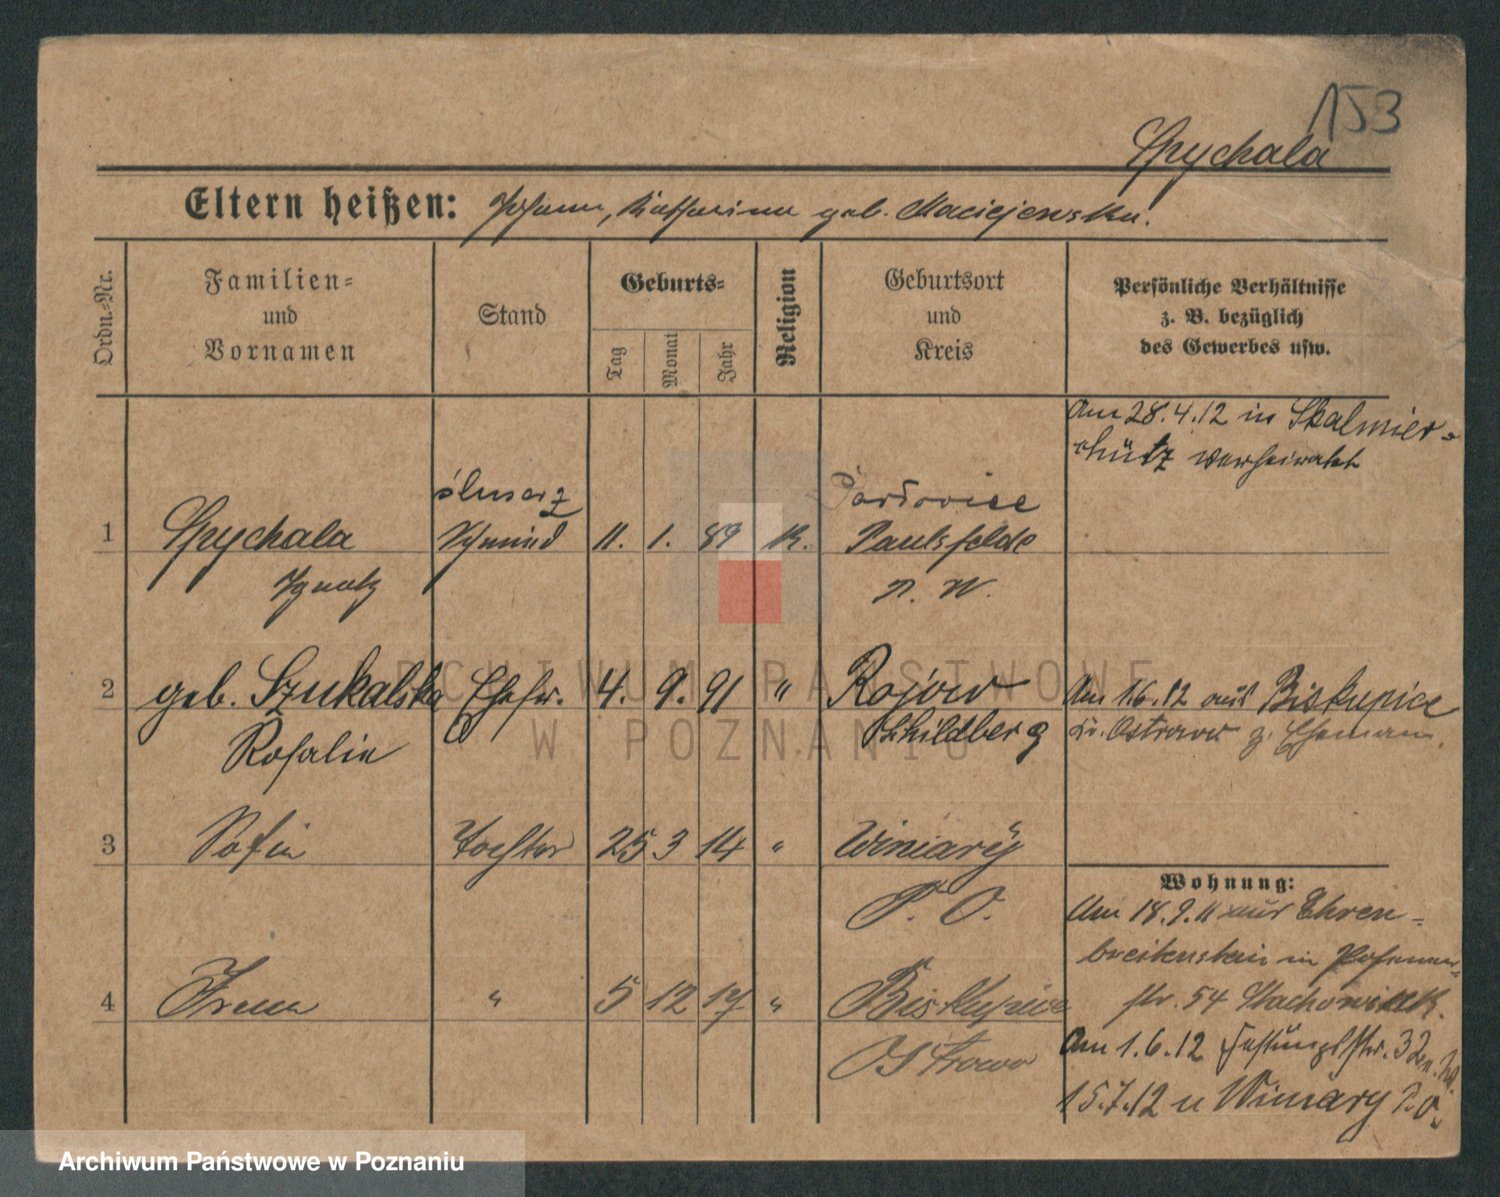 153
Spychala
Eltern heißen: Johann, Katharina geb. Maciejewska.
Ordn.=Nr.
Familien=
und
Vornamen
Stand
Geburts=
Tag
Monat
Jahr
Religion
Geburtsort
und
Kreis
Persönliche Verhältnisse
z. B. bezüglich
des Gewerbes usw.
Am 28.4.12 in Skalmier=
schütz verheiratet
ślusarz
1 Spychala Schmied 11. 1. 89 K. Paulsfelde
Ignatz P. W.
2 geb. Szukalska Ehefr. 4. 9. 91 " Rojow Am 1.6.12 aus Biskupice
Rosalie Schildberg Kr. Ostrowo z. Ehemann.
3 Sofie Tochter 25 3 14 " Winiary
P. O.
Wohnung:
Am 18.9.11 aus Ehren=
breitenstein in
str. 54 Stachowiak.
4 Irene " 5 12 17 " Biskupice
Ostrowo
Am 1.6.12 Festungsstr. 32
15.7.12 n Winiary P. O.
ARCHIWUM PAŃSTWOWE
W POZNANIU
Archiwum Państwowe w Poznaniu